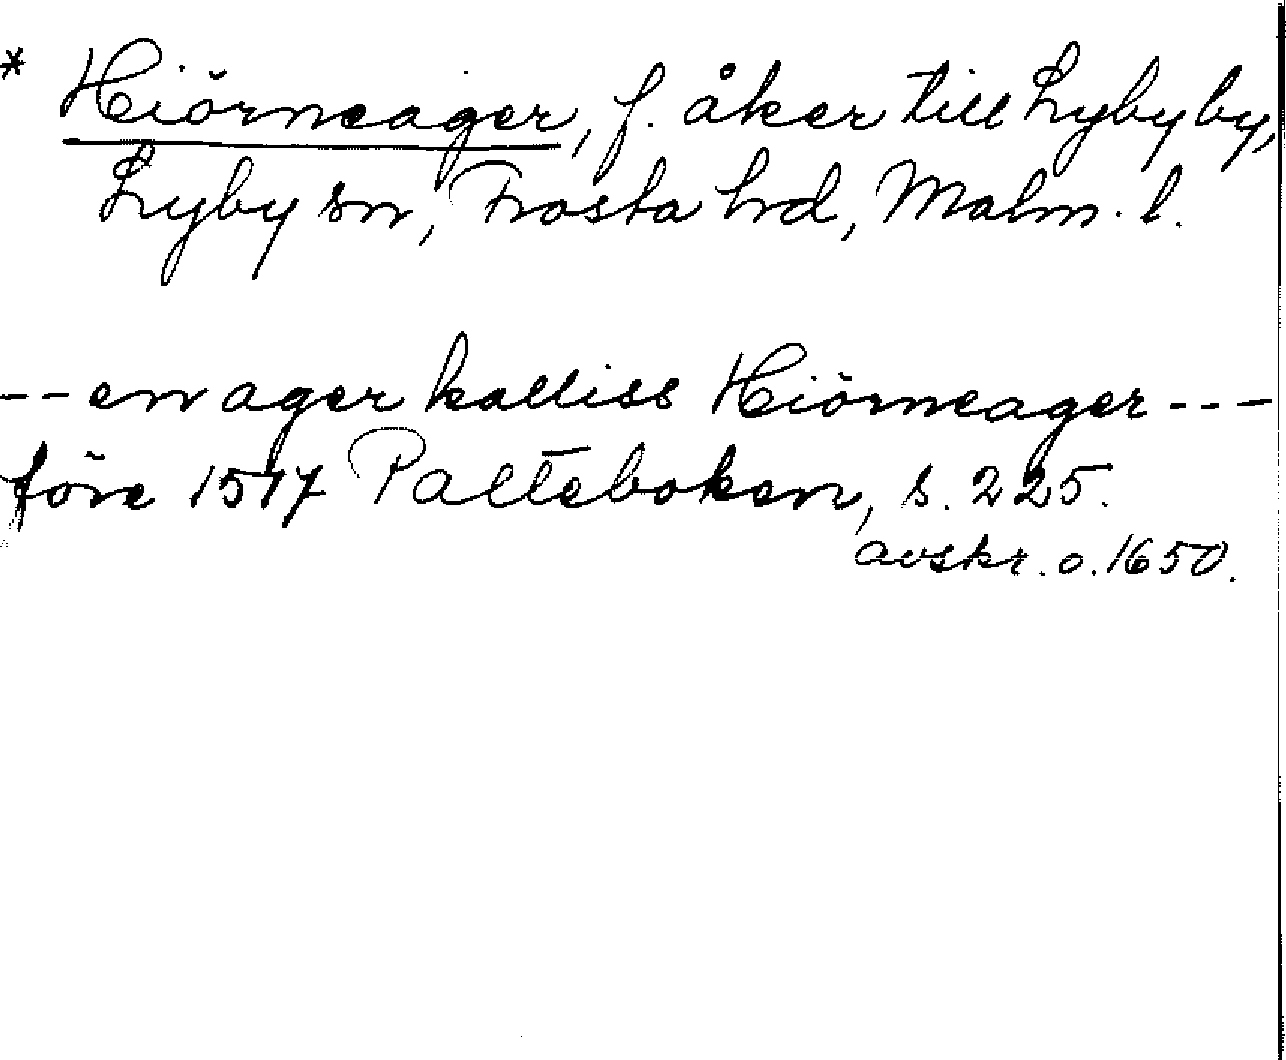 * Hiörneager, f. åker till Lyby by,
Lyby sn, Frosta hd, Malm. l.
-- en ager kalliss Hiörneager ---
före 1517 Palteboken, s. 225.
avskr. o. 1650.